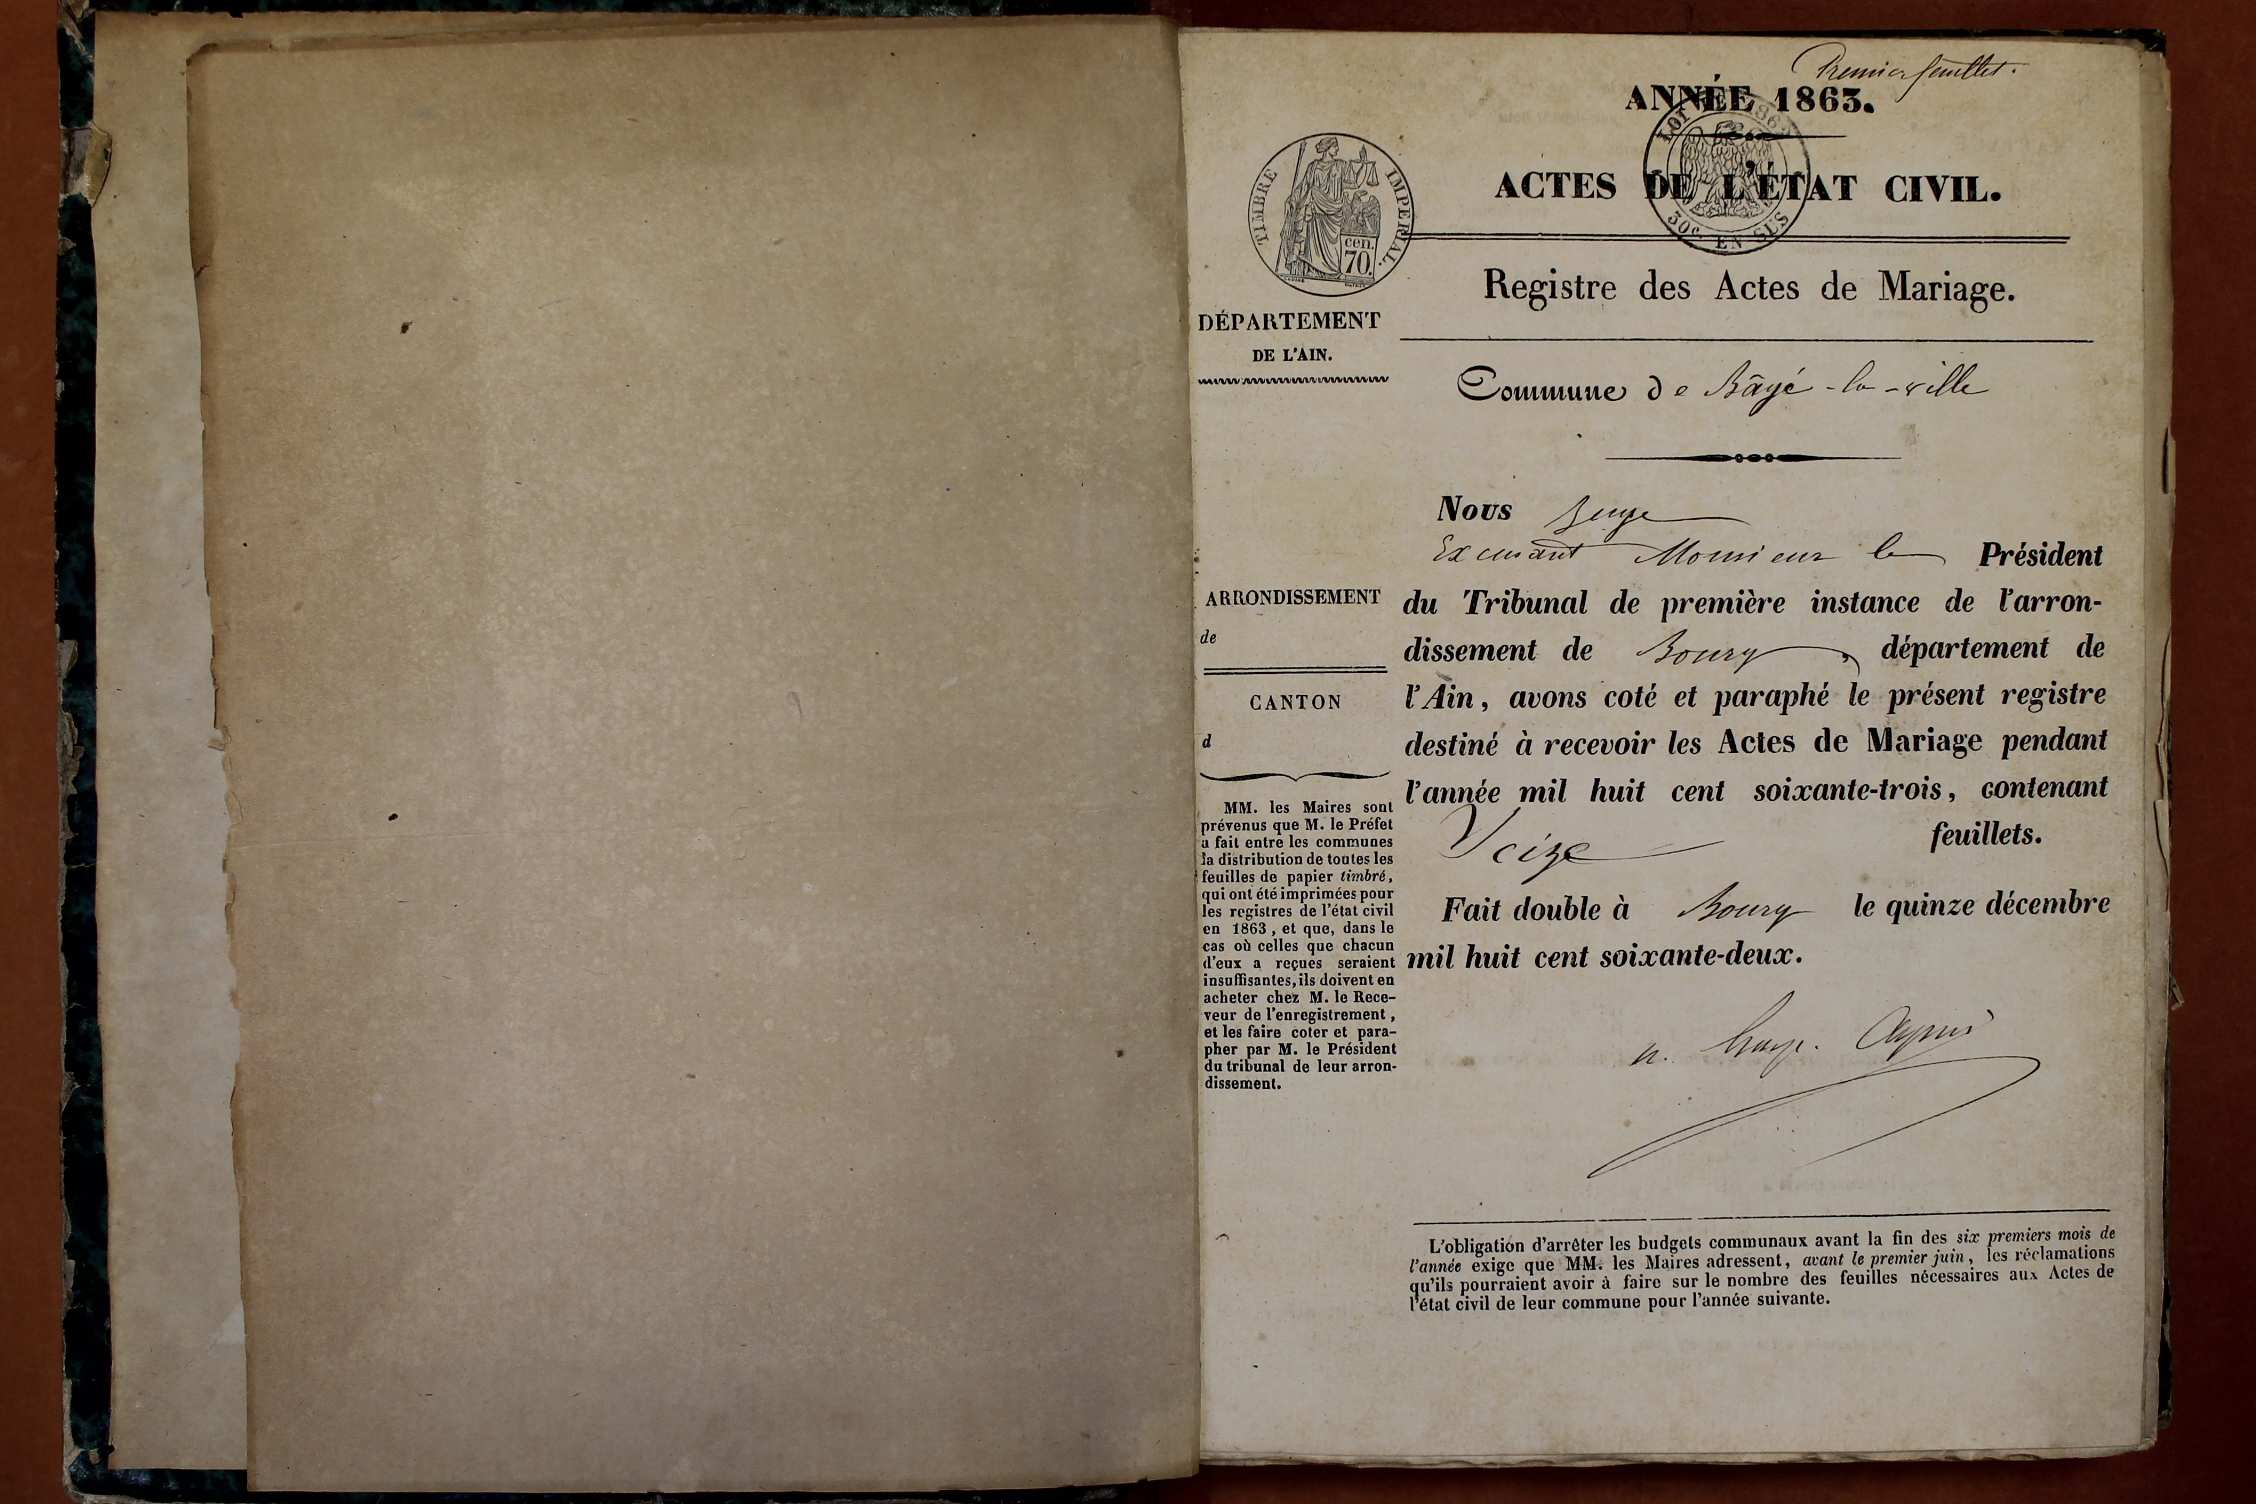 Premier feuillet.
ANNÉE 1863.
LOI 1862
30c. EN SUS
TIMBRE IMPERIAL.
cen.
70.
ACTES DE L'ÉTAT CIVIL.
Registre des Actes de Mariage.
DÉPARTEMENT
DE L'AIN.
Commune de Bâgé-la-ville
ARRONDISSEMENT
de
CANTON
d
MM. les Maires sont
prévenus que M. le Préfet
a fait entre les communes
la distribution de toutes les
feuilles de papier timbré,
qui ont été imprimées pour
les registres de l'état civil
en 1863, et que, dans le
cas où celles que chacun
d'eux a reçues seraient
insuffisantes, ils doivent en
acheter chez M. le Rece-
veur de l'enregistrement,
et les faire coter et para-
pher par M. le Président
du tribunal de leur arron-
dissement.
Nous Juge
Excusant Monsieur le Président
du Tribunal de première instance de l'arron-
dissement de Bourg, département de
l'Ain, avons coté et paraphé le présent registre
destiné à recevoir les Actes de Mariage pendant
l'année mil huit cent soixante-trois, contenant
Seize feuillets.
Fait double à Bourg le quinze décembre
mil huit cent soixante-deux.
L'obligation d'arrêter les budgets communaux avant la fin des six premiers mois de
l'année exige que MM. les Maires adressent, avant le premier juin, les réclamations
qu'ils pourraient avoir à faire sur le nombre des feuilles nécessaires aux Actes de
l'état civil de leur commune pour l'année suivante.